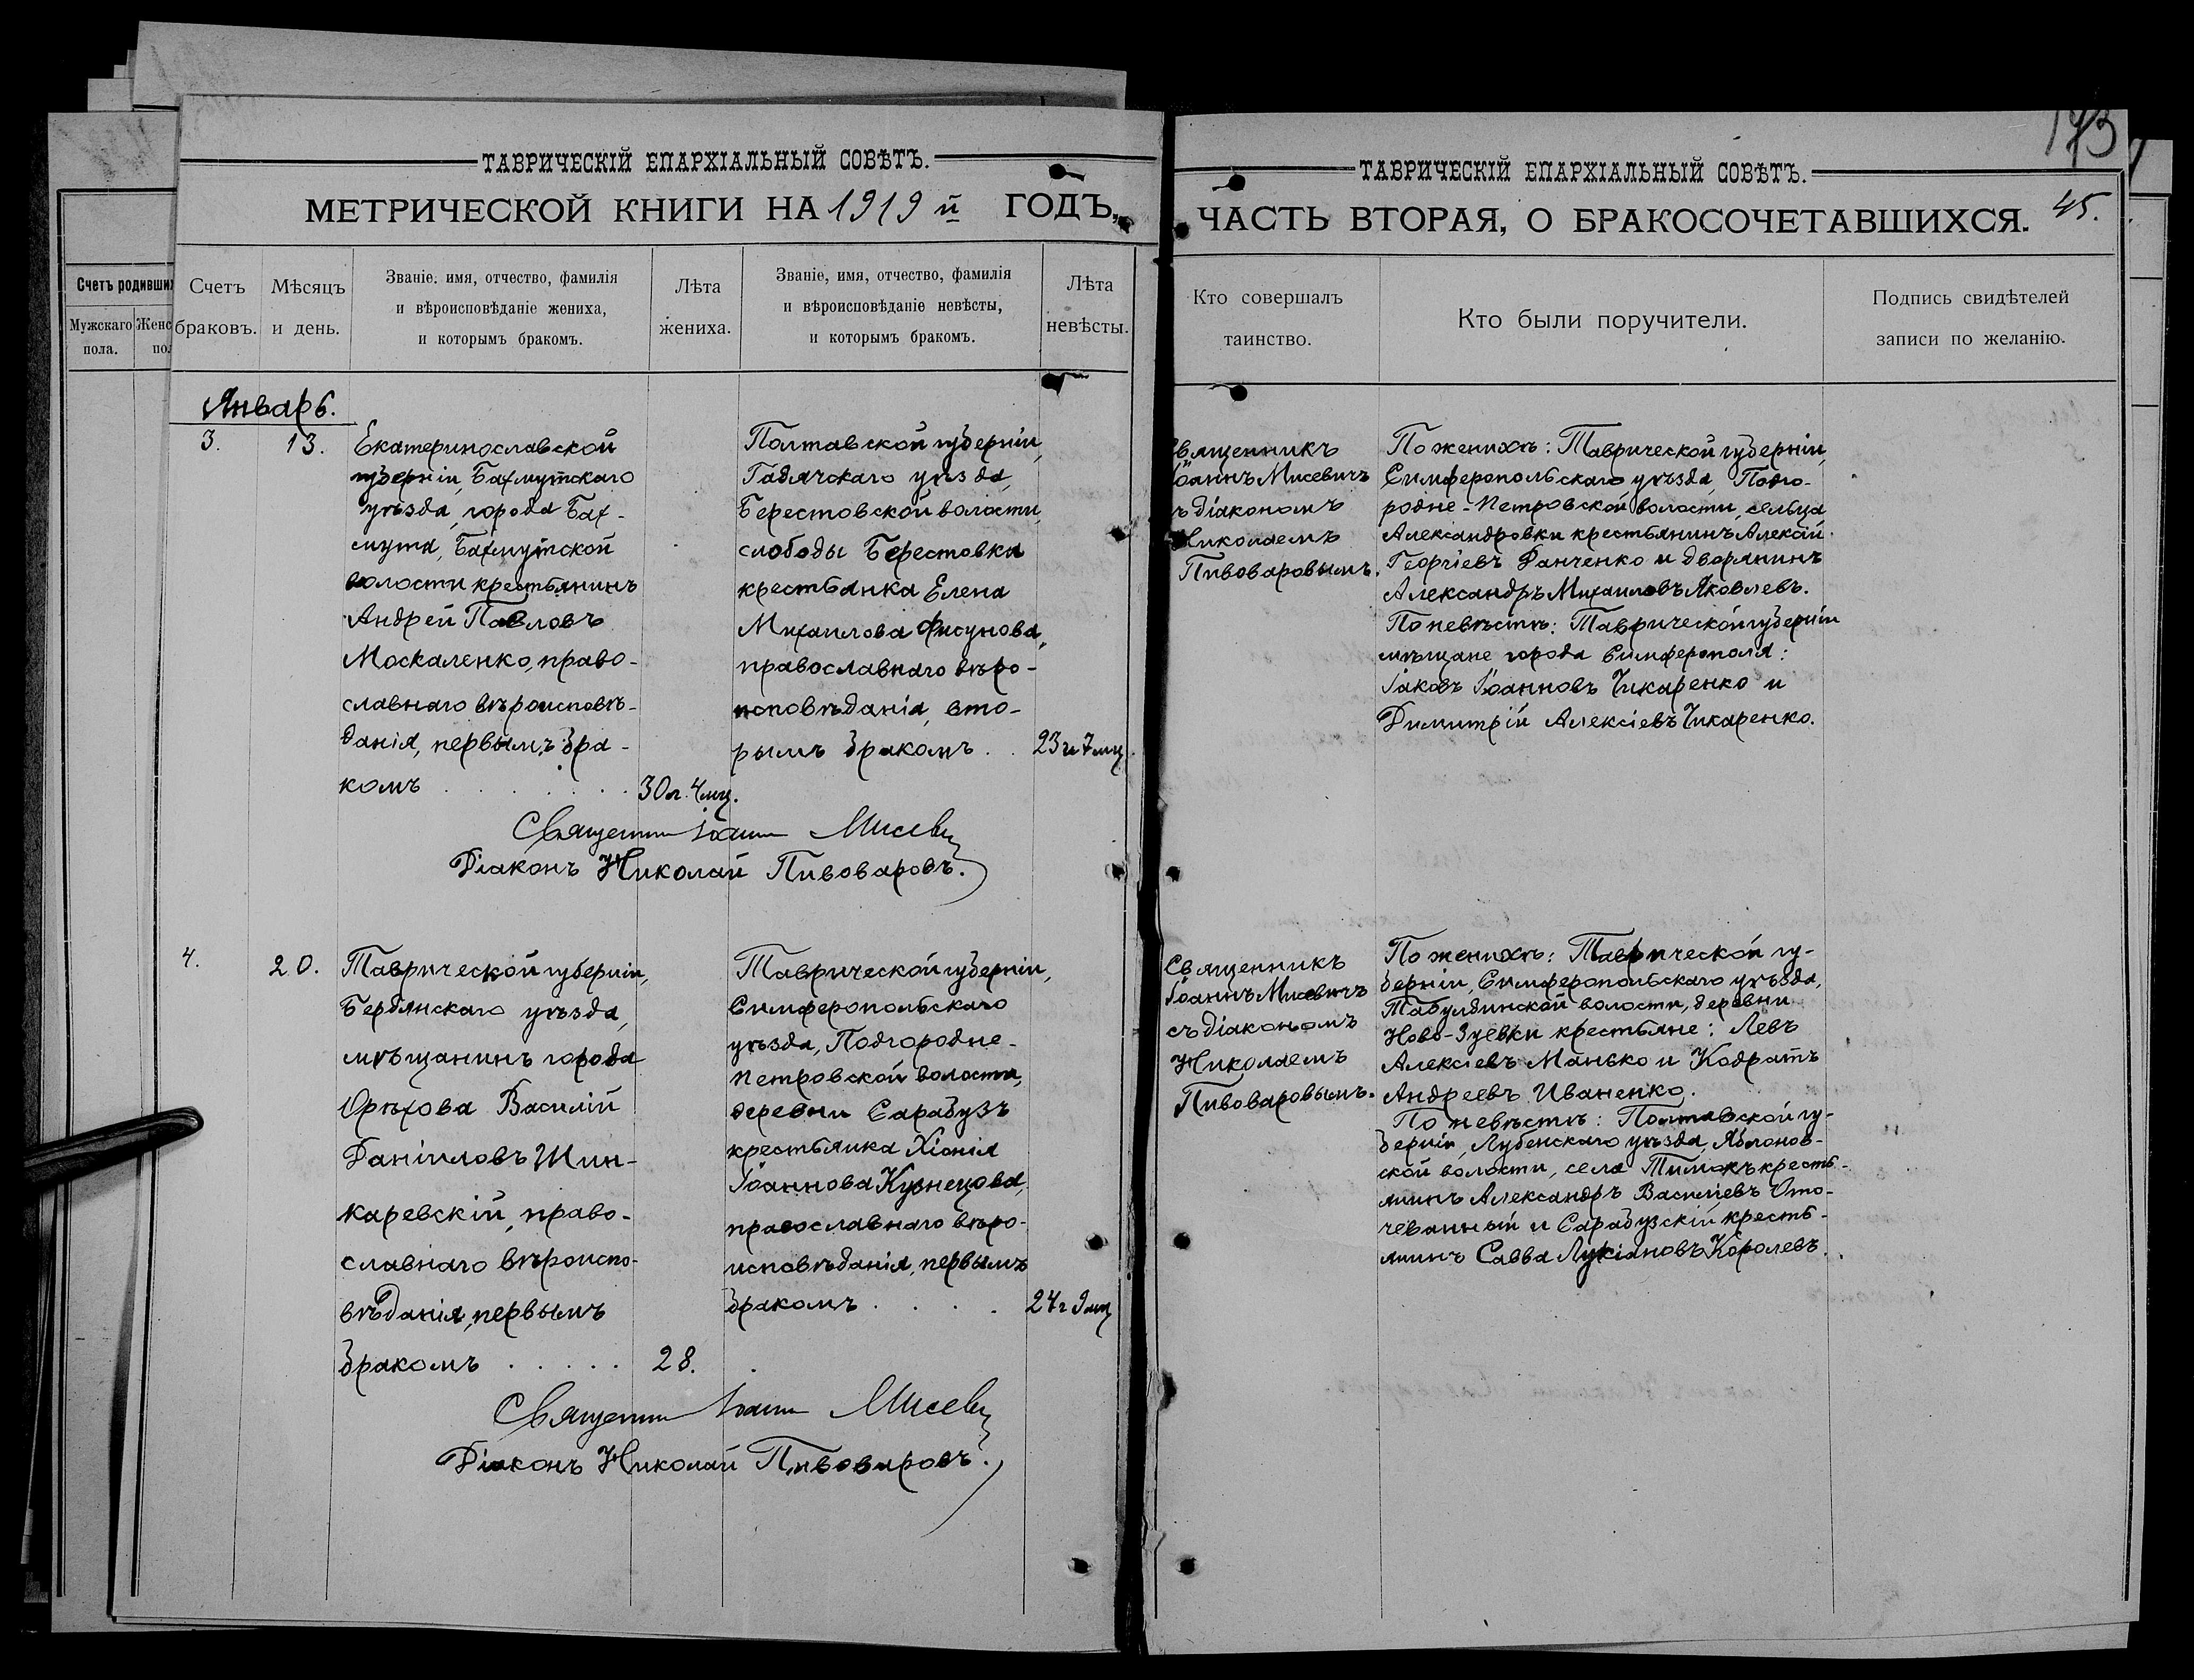 ТАВРИЧЕСКІЙ ЕПАРХІАЛЬНЫЙ СОВѢТЪ.
МЕТРИЧЕСКОЙ КНИГИ НА 1919 й ГОДЪ,
Счетъ родивших
Мужскаго
пола.
Женс
пол
Счетъ
браковъ.
Мѣсяцъ
и день.
Званіе. имя, отчество, фамилія
и вѣроисповѣданіе жениха,
и которымъ бракомъ.
Лѣта
жениха.
Званіе, имя, отчество, фамилія
и вѣроисповѣданіе невѣсты,
и которымъ бракомъ.
Лѣта
невѣсты.
Январь.
3.
13.
Екатеринославской
губерніи, Бахмутскаго
уѣзда, города Бах-
мута, Бахмутской
волости крестьянинъ
Андрей Павловъ
Москаленко, право-
славнаго вѣроисповѣ-
данія, первымъ бра-
комъ
30 л. 4 мц.
Полтавской губерніи,
Гадячскаго уѣзда,
Берестовской волости,
слободы Берестовки
крестьянка Елена
Михаилова Фисунова,
православнаго вѣро-
исповѣданія, вто-
рымъ бракомъ . .
23 г 7 мц.
Священникъ Іоаннъ Мисевичъ
Діаконъ Николай Пивоваровъ.
4.
20.
Таврической губерніи,
Бердянскаго уѣзда,
мѣщанинъ города
Орѣхова Василій
Даніиловъ Шин-
каревскій, право-
славнаго вѣроиспо-
вѣданія, первымъ
бракомъ . . . . .
28.
Таврической губерніи,
Симферопольскаго
уѣзда, Подгородне-
Петровской волости,
деревни Сарабузъ
крестьянка Хіонія
Іоаннова Кузнецова,
православнаго вѣро-
исповѣданія, первымъ
бракомъ . . . .
24 г 9 мц
Священникъ Іоаннъ Мисевичъ
Діаконъ Николай Пивоваровъ.
173
ТАВРИЧЕСКІЙ ЕПАРХІАЛЬНЫЙ СОВѢТЪ.
ЧАСТЬ ВТОРАЯ, О БРАКОСОЧЕТАВШИХСЯ.
45.
Кто совершалъ
таинство.
Кто были поручители.
Подпись свидѣтелей
записи по желанію.
Священникъ
Іоаннъ Мисевичъ
съ діакономъ
Николаемъ
Пивоваровымъ.
По женихѣ: Таврической губерніи,
Симферопольскаго уѣзда, Подго-
родне-Петровской волости, сельца
Александровки крестьянинъ Алексій
Георгіевъ Данченко и дворянинъ
Александръ Михаиловъ Яковлевъ.
По невѣстѣ: Таврической губерніи
мѣщане города Симферополя:
Іаковъ Іоанновъ Чикаренко и
Димитрій Алексіевъ Чикаренко.
Священникъ
Іоаннъ Мисевичъ
съ діакономъ
Николаемъ
Пивоваровымъ.
По женихѣ: Таврической гу-
берніи, Симферопольскаго уѣзда,
Табулдинской волости, деревни
Ново-Зуевки крестьяне: Левъ
Алексіевъ Манько и Кодратъ
Андреевъ Иваненко.
По невѣстѣ: Полтавской гу-
берніи, Лубенскаго уѣзда, Яблонов-
ской волости, села Тимокъ кресть-
янинъ Александръ Василіевъ Ото-
чеванный и Сарабузскій кресть-
янинъ Савва Лукіановъ Королевъ.